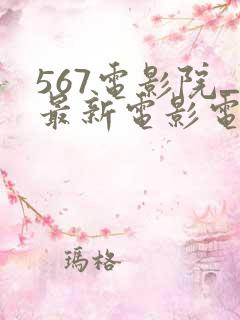 567电影院_
最新电影电
玛格